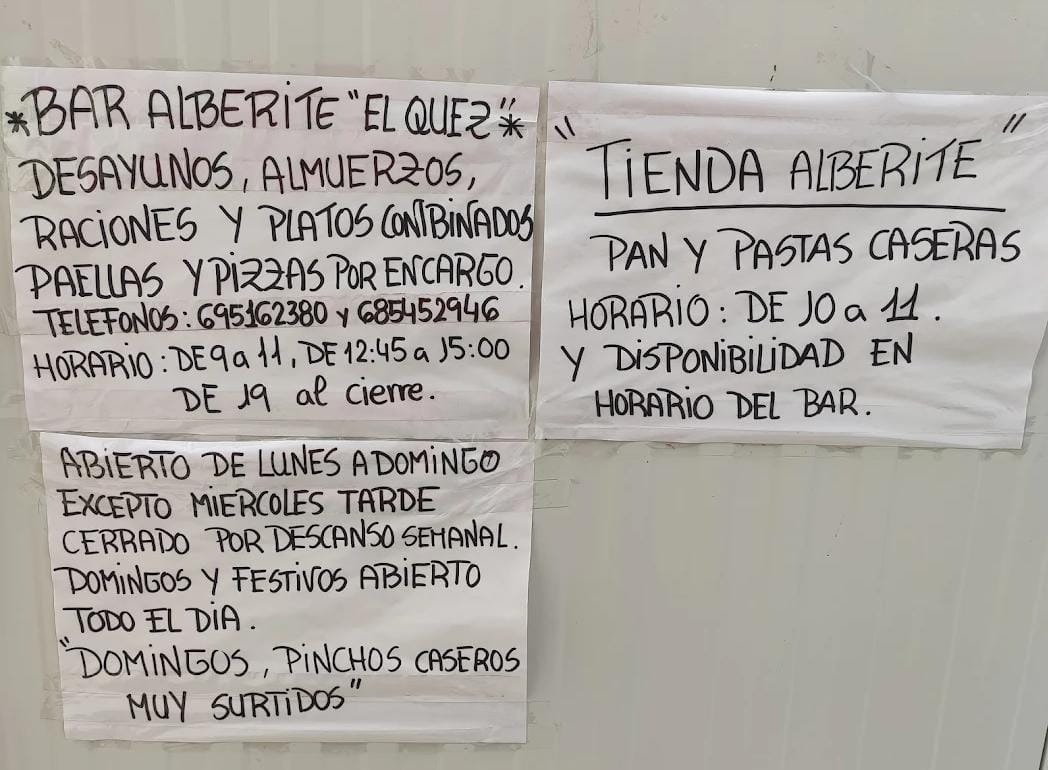 *BAR ALBERITE "EL QUEZ"*
DESAYUNOS, ALMUERZOS,
RACIONES Y PLATOS CONBINADOS
PAELLAS Y PIZZAS POR ENCARGO.
TELEFONOS: 695162380 y 685452946
HORARIO: DE 9 a 11, DE 12:45 a 15:00
DE 19 al cierre.
ABIERTO DE LUNES A DOMINGO
EXCEPTO MIERCOLES TARDE
CERRADO POR DESCANSO SEMANAL.
DOMINGOS Y FESTIVOS ABIERTO
TODO EL DIA.
"DOMINGOS, PINCHOS CASEROS
MUY SURTIDOS"
"TIENDA ALBERITE"
PAN Y PASTAS CASERAS
HORARIO: DE 10 a 11.
Y DISPONIBILIDAD EN
HORARIO DEL BAR.